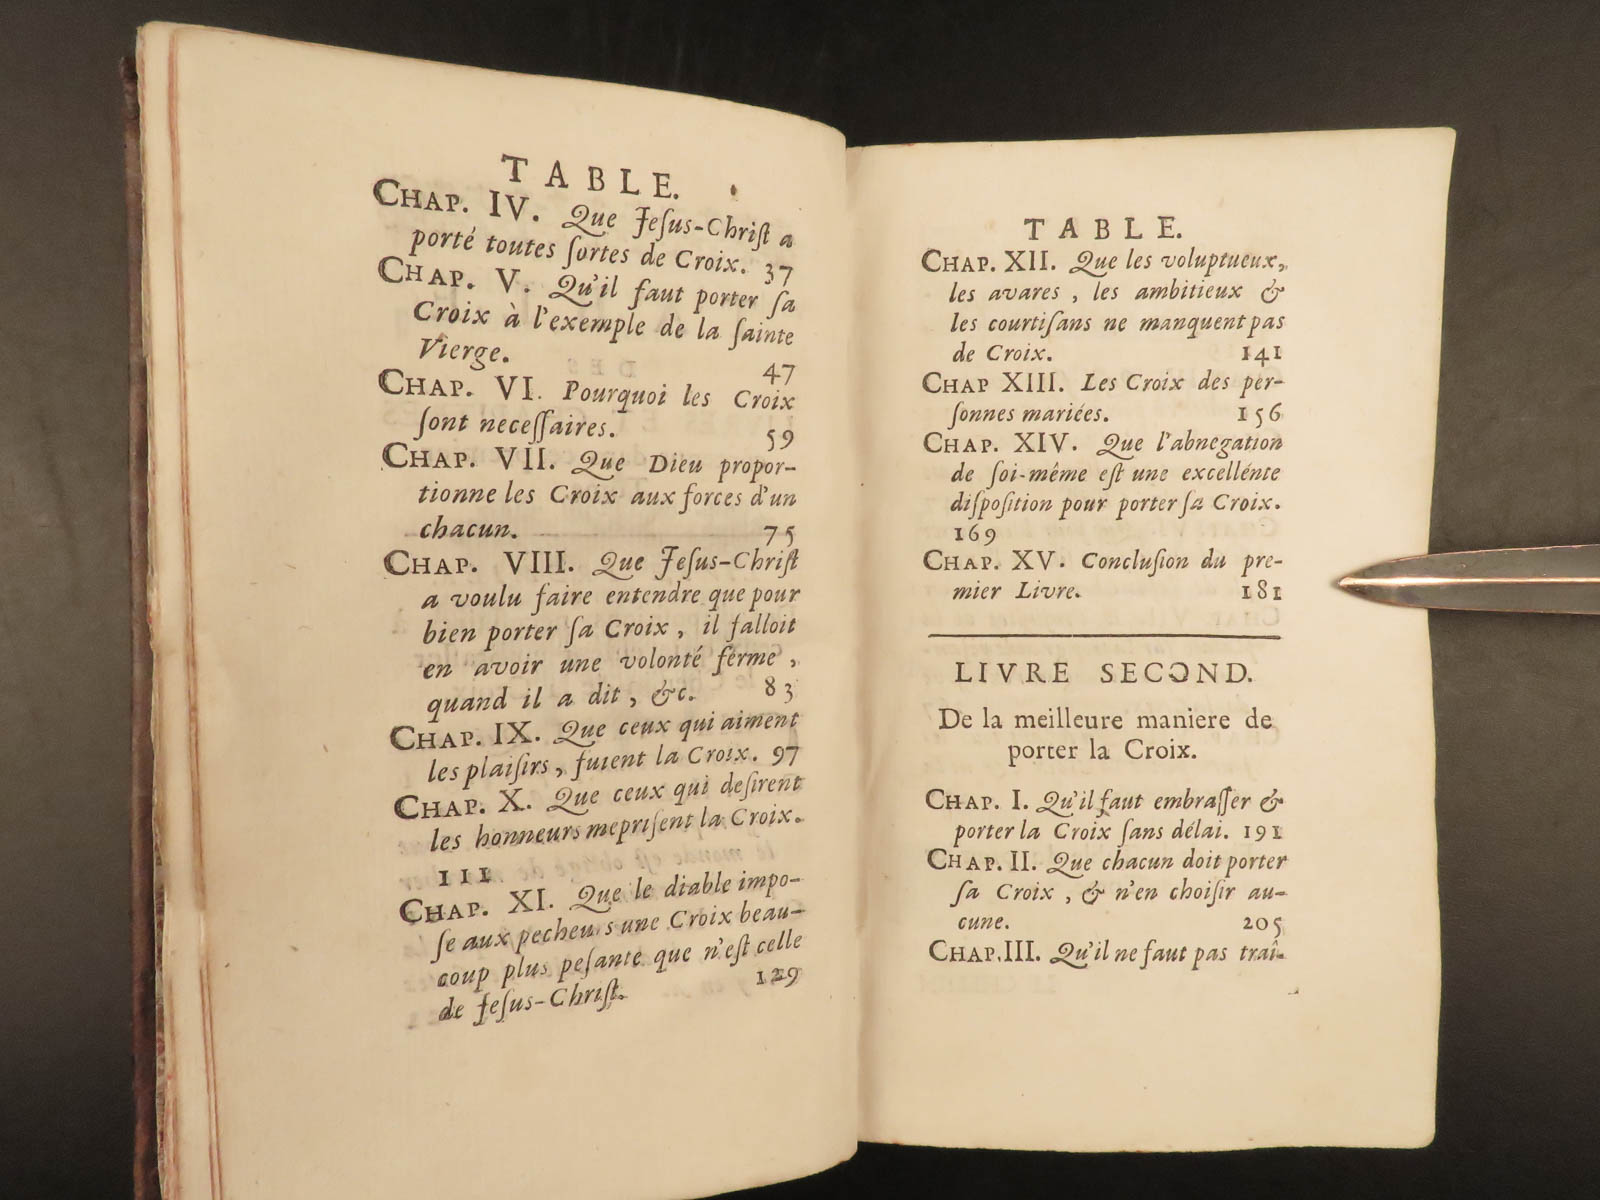 TABLE.
CHAP. IV. Que Jeſus-Chriſt a
porté toutes ſortes de Croix. 37
CHAP. V. Qu'il faut porter ſa
Croix à l'exemple de la ſainte
Vierge. 47
CHAP. VI. Pourquoi les Croix
ſont neceſſaires. 59
CHAP. VII. Que Dieu propor-
tionne les Croix aux forces d'un
chacun. 75
CHAP. VIII. Que Jeſus-Chriſt
a voulu faire entendre que pour
bien porter ſa Croix, il falloit
en avoir une volonté ferme,
quand il a dit, &c. 83
CHAP. IX. Que ceux qui aiment
les plaiſirs, fuient la Croix. 97
CHAP. X. Que ceux qui deſirent
les honneurs mepriſent la Croix.
111
CHAP. XI. Que le diable impo-
ſe aux pecheurs une Croix beau-
coup plus peſante que n'eſt celle
de Jeſus-Chriſt. 129
TABLE.
CHAP. XII. Que les voluptueux,
les avares, les ambitieux &
les courtiſans ne manquent pas
de Croix. 141
CHAP XIII. Les Croix des per-
ſonnes mariées. 156
CHAP. XIV. Que l'abnegation
de ſoi-même eſt une excellénte
diſpoſition pour porter ſa Croix.
169
CHAP. XV. Concluſion du pre-
mier Livre. 181
LIVRE SECOND.
De la meilleure maniere de
porter la Croix.
CHAP. I. Qu'il faut embraſſer &
porter la Croix ſans délai. 191
CHAP. II. Que chacun doit porter
ſa Croix, & n'en choiſir au-
cune. 205
CHAP. III. Qu'il ne faut pas traî-